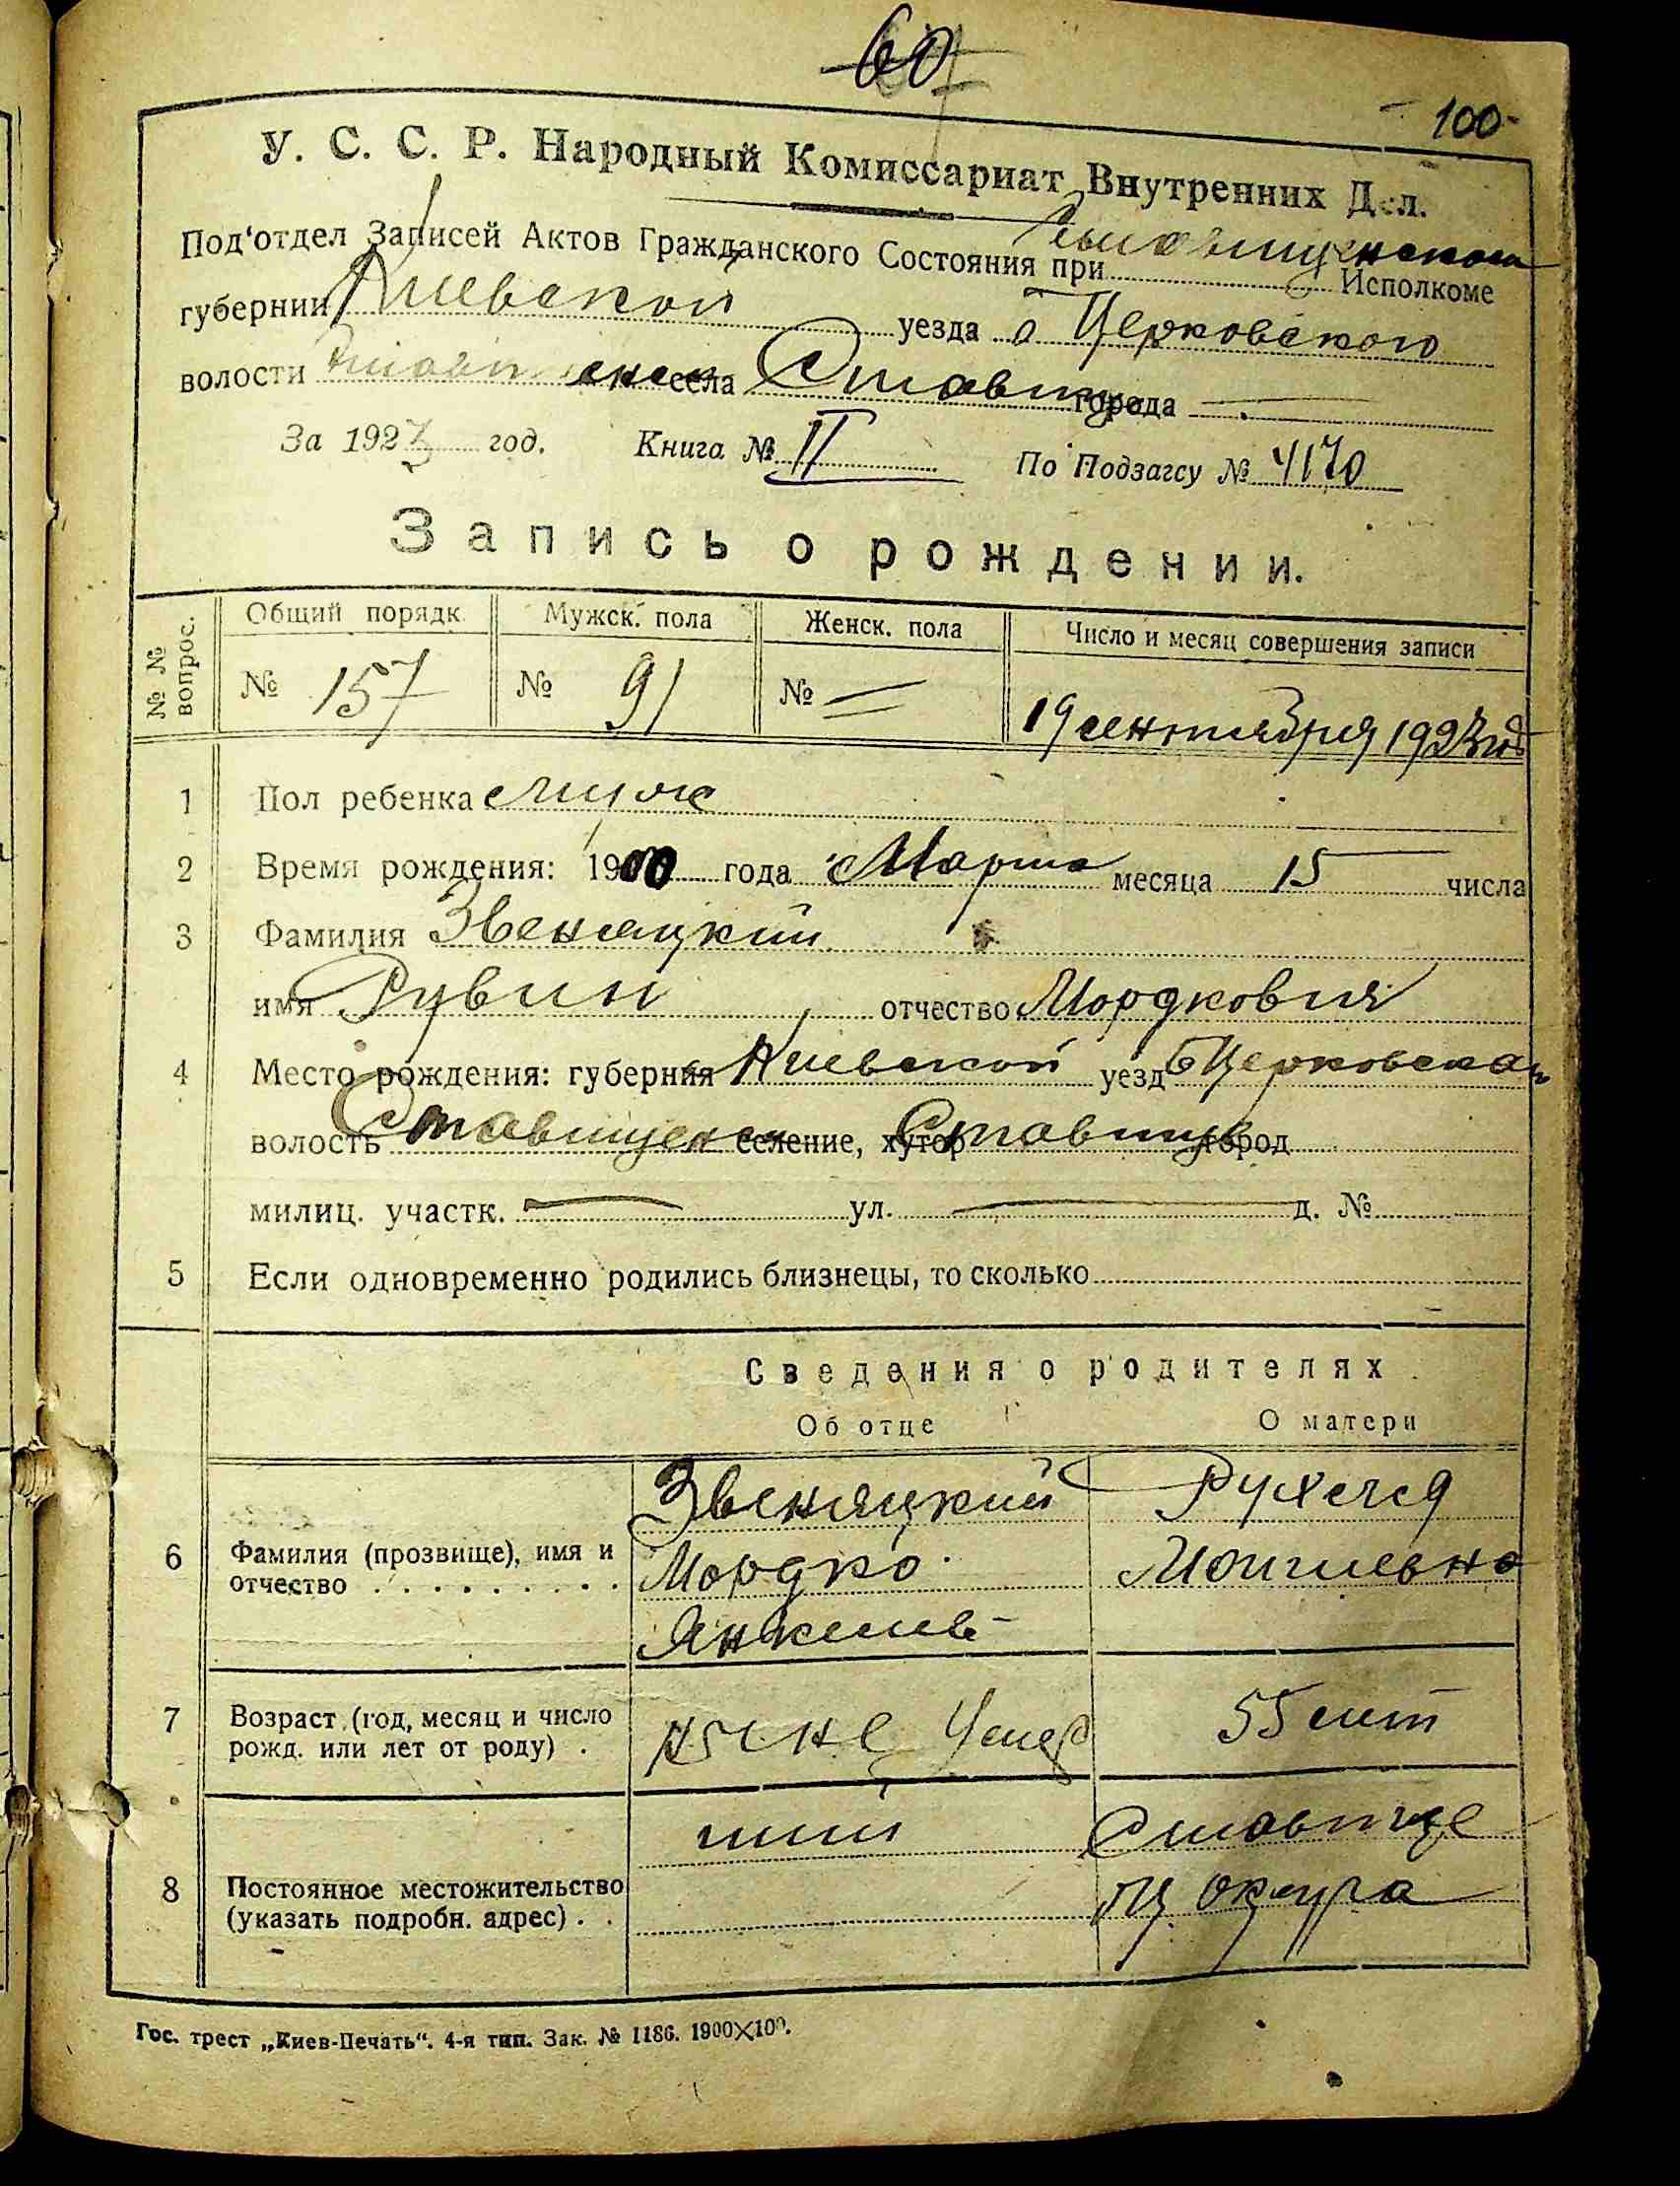 60
100
У. С. С. Р. Народный Комиссариат Внутренних Дел.
Под'отдел Записей Актов Гражданского Состояния при Исполкоме
губернии Киевской уезда Б Церковского
волости села Ставище города —
За 1923 год. Книга № II По Подзагсу № 4170
Запись о рождении.
№ № вопрос. Общий порядк. Мужск. пола Женск. пола Число и месяц совершения записи
№ 157 № 91 № — 19 сентября 1923
1 Пол ребенка муж
2 Время рождения: 1900 года Марта месяца 15 числа
3 Фамилия Звеняцкий
имя Рувин отчество Мордкович
4 Место рождения: губерния Киевской уезд БЦерковского
волость Ставищенск селение, хутор Ставище город
милиц. участк. — ул. — д. №
5 Если одновременно родились близнецы, то сколько
Сведения о родителях
Об отце О матери
Звеняцкий Рухеля
6 Фамилия (прозвище), имя и отчество Мордко
Янкелев
7 Возраст (год, месяц и число рожд. или лет от роду) 55 лет
Ставище
8 Постоянное местожительство (указать подробн. адрес) БЦ округа
Гос. трест „Киев-Печать“. 4-я тип. Зак. № 1186. 1900×100.